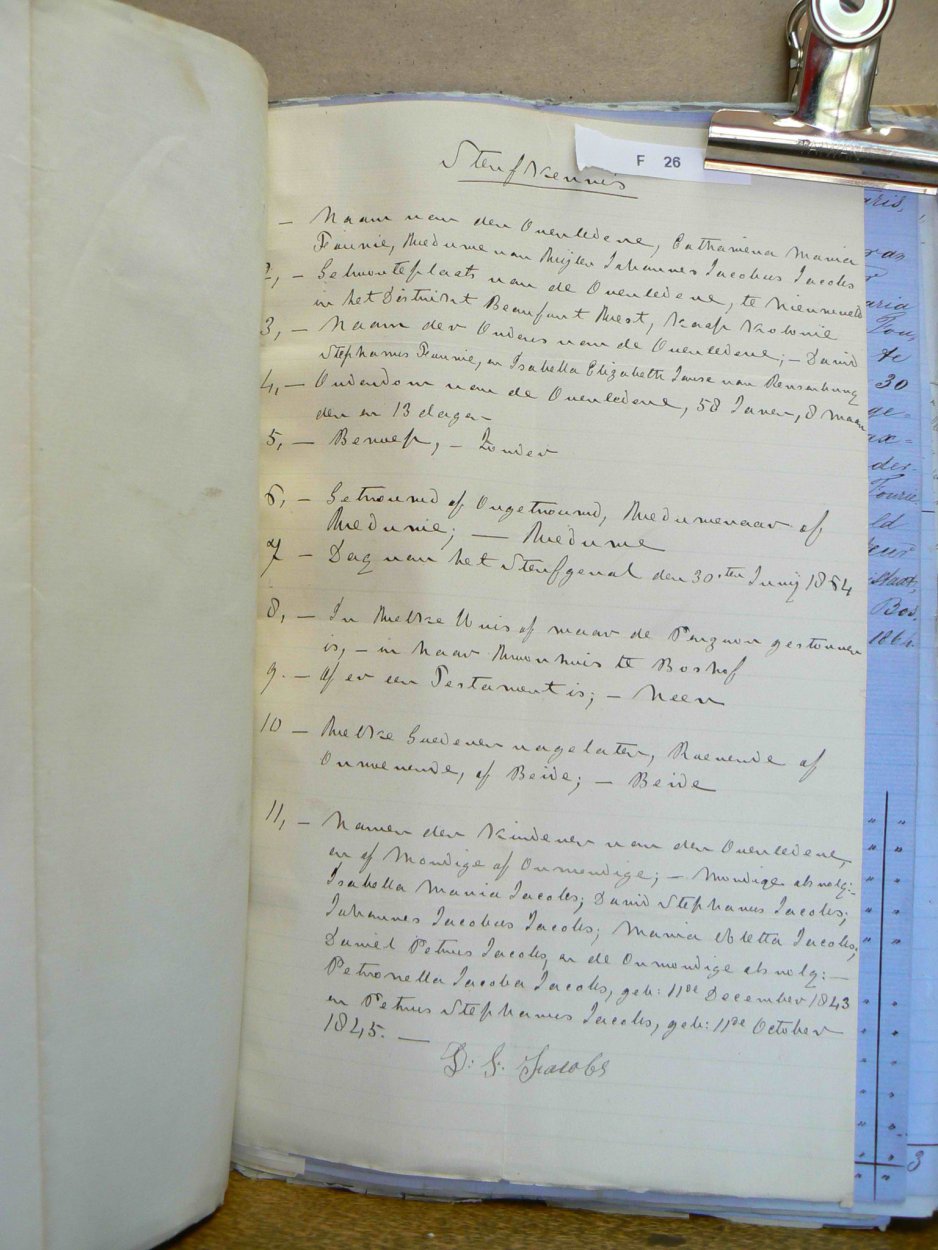 F 26
Sterfkennis
– Naam van den Overledene, Catharina Maria
Fourie, Weduwe van Wijlen Johannes Jacobus Jacobs
2, – Geboorteplaats van de Overledene, te Nieuweveld
in het District Beaufort West, Kaap Kolonie
3, – Naam der Ouders van de Overledene; – David
Stephanus Fourie, en Isabella Elizabeth Janse van Rensenburg
4, – Ouderdom van de Overledene, 58 Jaren, 8 maan
den en 13 dagen
5, – Beroep, – Zonder
6, – Getrouwd of Ongetrouwd, Weduwenaar of
Weduwe; – Weduwe
7 – Dag van het Sterfgeval den 30sten Junij 1864
8, – In Welke Huis of waar de Persoon gestorven
is, – in haar Woonhuis te Boshof
9. – Of er een Testament is; – Neen
10 – Welke Goederen nagelaten, Roerende of
Onroerende, of Beide; – Beide
11, – Namen der Kinderen van den Overledene,
en of Mondige of Onmondige; – Mondige als volg:–
Isabella Maria Jacobs; David Stephanus Jacobs;
Johannes Jacobus Jacobs; Maria Aletta Jacobs;
Daniel Petrus Jacobs, en de Onmondige als volg: –
Petronella Jacoba Jacobs, geb: 11de December 1843
en Petrus Stephanus Jacobs, geb: 11de October
1845. –
D. S. Jacobs
aria
te
30
ge=
der
ld
Staat,
1864.
3